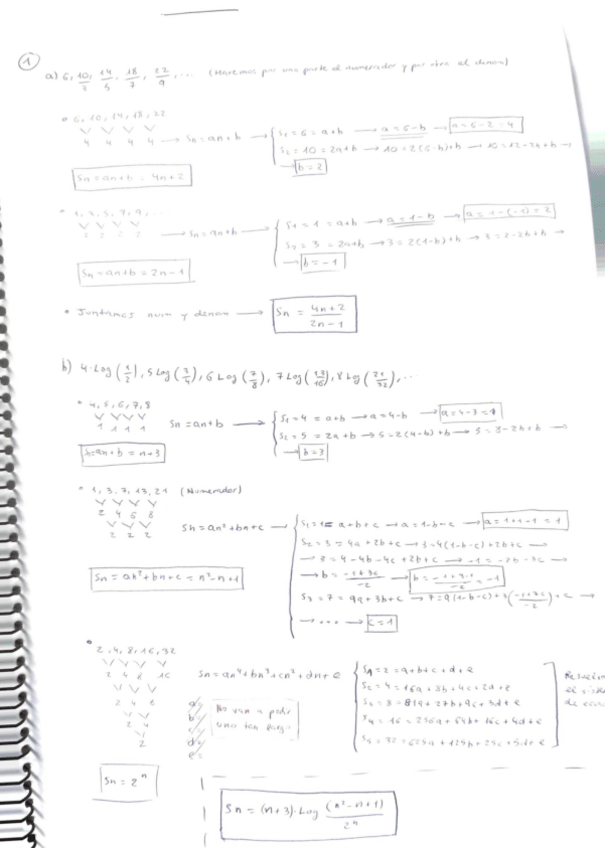 1
a) 6, 10/3, 14/5, 18/7, 22/9, ... (Hacemos por una parte el numerador y por otra el denom)
• 6, 10, 14, 18, 22
4 4 4 4 → Sn = an+b → S1 = 6 = a+b → a = 6-b → a = 6-2 = 4
S2 = 10 = 2a+b → 10 = 2(6-b)+b → 10 = 12-2b+b →
→ b = 2
Sn = an+b = 4n+2
• 1, 3, 5, 7, 9, ...
2 2 2 2 → Sn = an+b → S1 = 1 = a+b → a = 1-b → a = 1-(-1) = 2
S2 = 3 = 2a+b → 3 = 2(1-b)+b → 3 = 2-2b+b →
→ b = -1
Sn = an+b = 2n-1
• Juntamos num y denom → Sn = (4n+2)/(2n-1)
b) 4·Log(1/2), 5Log(3/4), 6Log(7/8), 7Log(13/16), 8Log(21/32), ...
• 4, 5, 6, 7, 8
1 1 1 1 Sn = an+b → S1 = 4 = a+b → a = 4-b → a = 4-3 = 1
S2 = 5 = 2a+b → 5 = 2(4-b)+b → 5 = 8-2b+b →
→ b = 3
Sn = an+b = n+3
• 1, 3, 7, 13, 21 (Numerador)
2 4 6 8
2 2 2
Sn = an²+bn+c → S1 = 1 = a+b+c → a = 1-b-c → a = 1+1-1 = 1
S2 = 3 = 4a+2b+c → 3 = 4(1-b-c)+2b+c →
→ 3 = 4-4b-4c+2b+c → -1 = -2b-3c →
→ b = (-1+3c)/-2 → b = (-1+3·1)/-2 = -1
S3 = 7 = 9a+3b+c → 7 = 9(1-b-c)+3((-1+3c)/-2)+c →
→ ... → c = 1
Sn = an²+bn+c = n²-n+1
• 2, 4, 8, 16, 32
2 4 8 16
2 4 8
2 4
2
Sn = an⁴+bn³+cn²+dn+e
S1 = 2 = a+b+c+d+e
S2 = 4 = 16a+8b+4c+2d+e
S3 = 8 = 81a+27b+9c+3d+e
S4 = 16 = 256a+64b+16c+4d+e
S5 = 32 = 625a+125b+25c+5d+e
a
b
c
d
e =
No van a pedir
uno tan largo
el
de
Sn = 2ⁿ
Sn = (n+3)·Log (n²-n+1)/2ⁿ